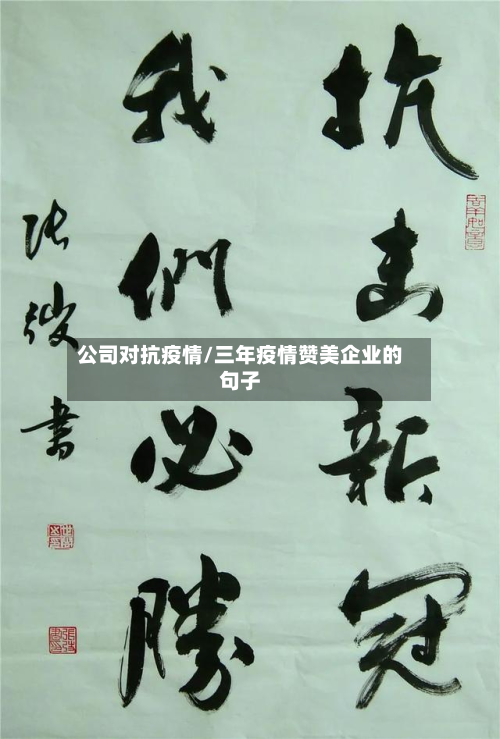 抗击新冠
我們必勝
张
書
公司对抗疫情/三年疫情赞美企业的
句子